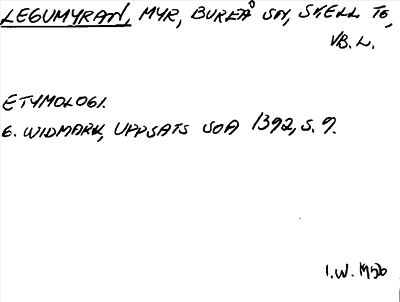 LEGUMYRAN, MYR, BUREÅ SN, SKELL TG,
VB. L.
ETYMOLOGI.
G. WIDMARK, UPPSATS SOA 1392, S. 9.
I.W. 1956